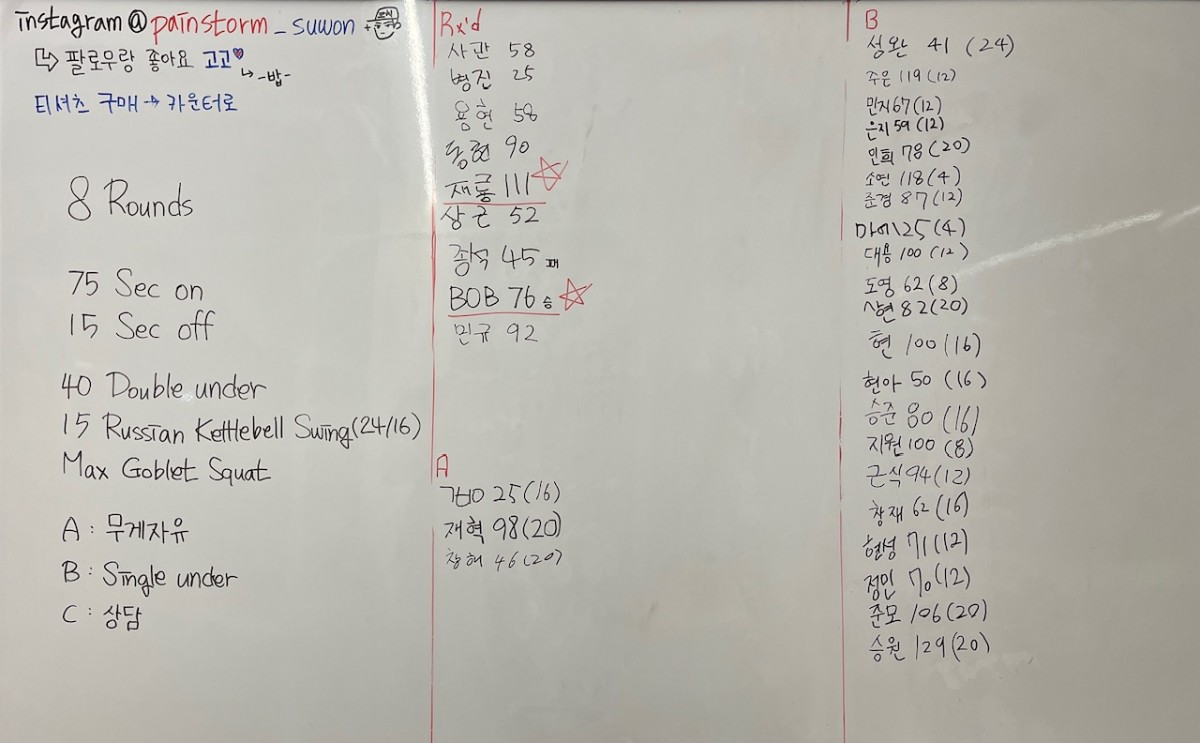 instagram@painstorm_suwon +
↳ 팔로우랑 좋아요 고고♥
↳ -밥-
티셔츠 구매 → 카운터로
8 Rounds
75 Sec on
15 Sec off
40 Double under
15 Russian Kettlebell Swing(24/16)
Max Goblet Squat
A : 무게자유
B : Single under
C : 상담
Rx'd
사관 58
병진 25
용현 58
동현 90
재룡 111 ☆
상근 52
종석 45 패
BOB 76 승 ☆
민규 92
A
25(16)
재혁 98(20)
창해 46(20)
B
성완 41 (24)
주은 119(12)
민지 67(12)
은지 59(12)
민희 78(20)
소연 118(4)
준경 87(12)
마에 125(4)
대용 100(12)
도영 62(8)
상현 82(20)
현 100(16)
현아 50 (16)
승준 80 (16)
지원 100 (8)
근식 94(12)
창재 62(16)
현성 71(12)
정민 70(12)
준모 106(20)
승원 129(20)